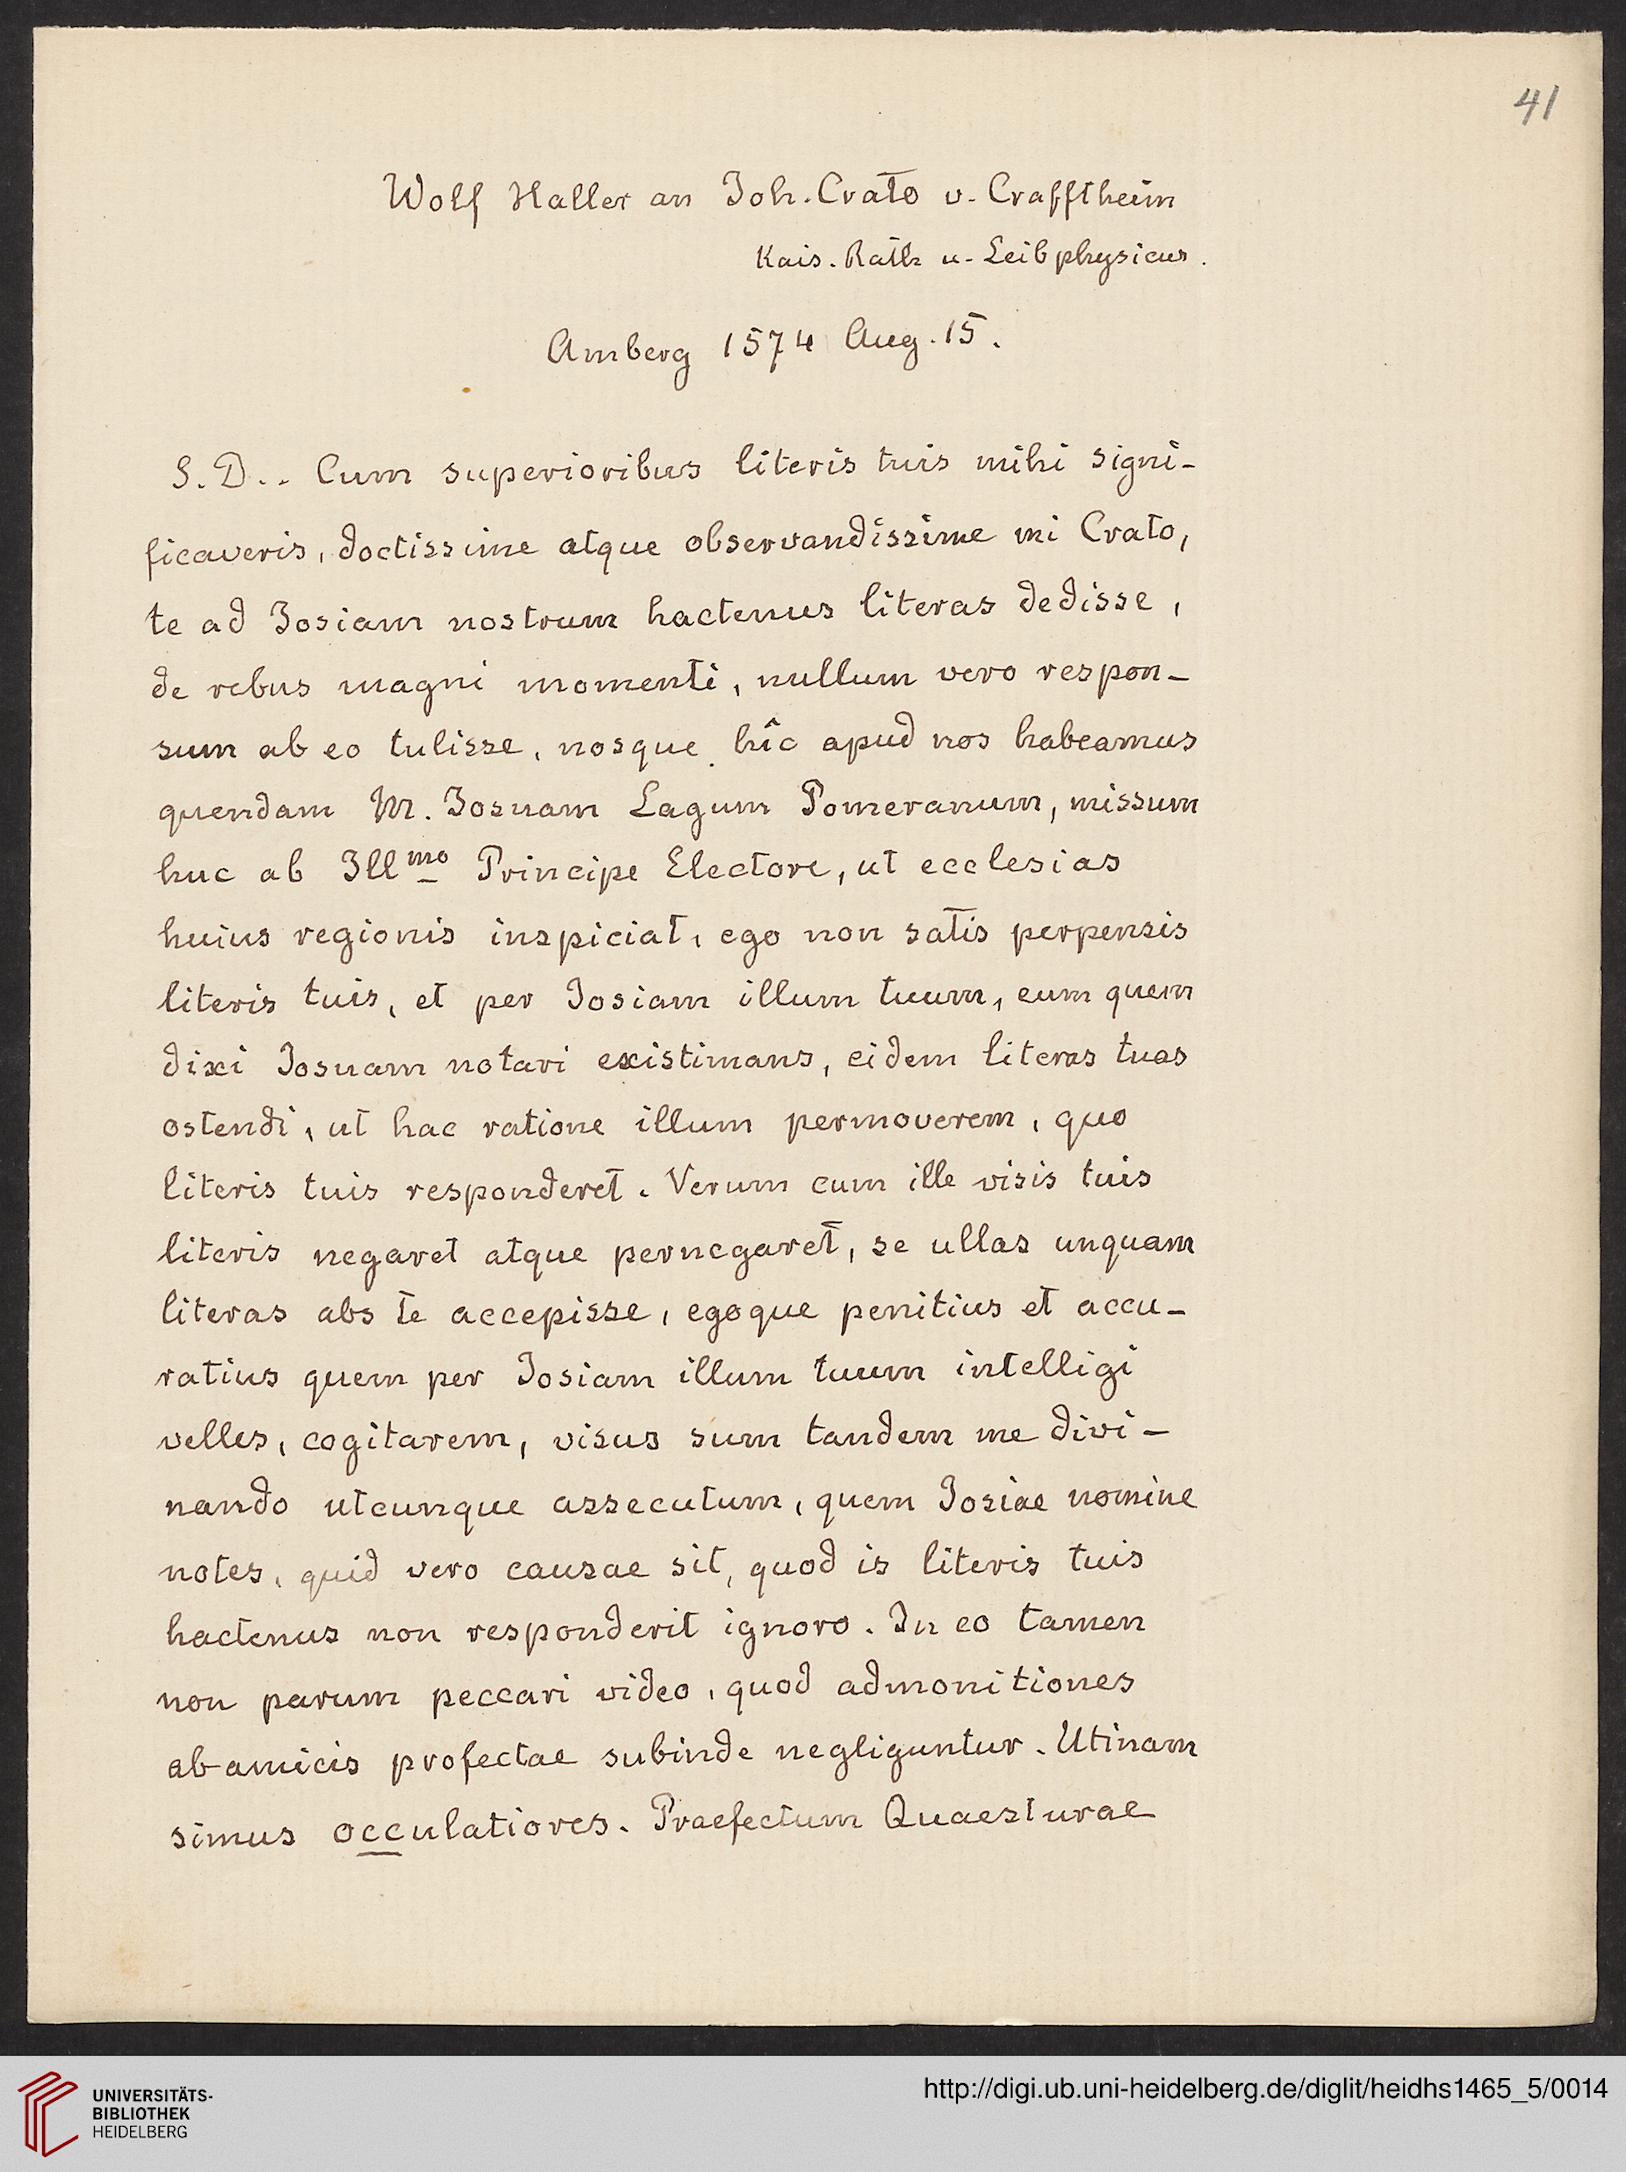 41
Wolf Haller an Joh. Crato v. Crafftheim
Kais. Rath u. Leibphysicus.
Amberg 1574 Aug. 15.
S. D.. Cum superioribus literis tuis mihi signi-
ficaveris, doctissime atque observandissime mi Crato,
te ad Josiam nostrum hactenus literas dedisse,
de rebus magni momenti, nullum vero respon-
sum ab eo tulisse, nosque hîc apud nos habeamus
quendam M. Josuam Lagum Pomeranum, missum
huc ab Illmo Principe Electore, ut ecclesias
huius regionis inspiciat, ego non satis perpensis
literis tuis, et per Josiam illum tuum, eum quem
dixi Josuam notari existimans, eidem literas tuas
ostendi, ut hac ratione illum permoverem, quo
literis tuis responderet. Verum cum ille visis tuis
literis negaret atque pernegaret, se ullas unquam
literas abs te accepisse, egoque penitius et accu-
ratius quem per Josiam illum tuum intelligi
velles, cogitarem, visus sum tandem me divi-
nando utcunque assecutum, quem Josiae nomine
notes, quid vero causae sit, quod is literis tuis
hactenus non responderit ignoro. In eo tamen
non parum peccari video, quod admonitiones
ab amicis profectae subinde negliguntur. Utinam
simus occulatiores. Praefectum Quaesturae
UNIVERSITÄTS-
BIBLIOTHEK
HEIDELBERG
http://digi.ub.uni-heidelberg.de/diglit/heidhs1465_5/0014